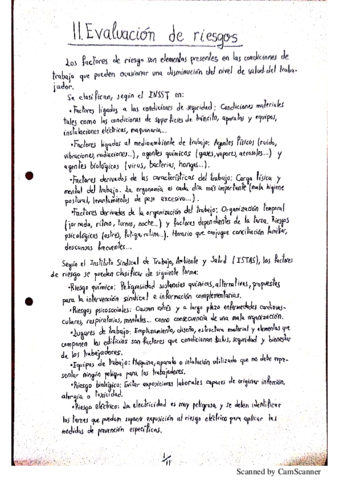 11. Evaluación de riesgos
Los factores de riesgo son elementos presentes en las condiciones de
trabajo que pueden ocasionar una disminución del nivel de salud del traba-
jador.
Se clasifican, según el INSST en:
• Factores ligados a las condiciones de seguridad: Condiciones materiales
tales como las condiciones de superficies de tránsito, aparatos y equipos,
instalaciones eléctricas, maquinaria...
• Factores ligados al medioambiente de trabajo: Agentes físicos (ruido,
vibraciones, radiaciones...), agentes químicos (gases, vapores, aerosoles...) y
agentes biológicos (virus, bacterias, hongos...).
• Factores derivados de las características del trabajo: Carga física y
mental del trabajo. La ergonomía es cada día más importante (mala higiene
postural, levantamientos de peso excesivo...).
• Factores derivados de la organización del trabajo: Organización temporal
(jornada, ritmo, turnos, noche...) y factores dependientes de la tarea. Riesgos
psicológicos (estrés, fatiga, rutina...). Horario que conjugue conciliación familiar,
descansos frecuentes...
Según el Instituto Sindical de Trabajo, Ambiente y Salud (ISTAS), los factores
de riesgo se pueden clasificar de siguiente forma:
• Riesgo químico: Peligrosidad sustancias químicas, alternativas, propuestas
para la intervención sindical e información complementarias.
• Riesgos psicosociales: Causan estrés y a largo plazo enfermedades cardiovas-
culares, respiratorias, mentales... como consecuencia de una mala organización.
• Lugares de trabajo: Emplazamiento, diseño, estructura material y elementos que
componen los edificios son factores que condicionan salud, seguridad y bienestar
de los trabajadores.
• Equipos de trabajo: Máquina, aparato o instalación utilizada que no debe repre-
sentar ningún peligro para los trabajadores.
• Riesgo biológico: Evitar exposiciones laborales capaces de originar infección,
alergia o toxicidad.
• Riesgo eléctrico: La electricidad es muy peligrosa, y se deben identificar
las tareas que puedan suponer exposición al riesgo eléctrico para aplicar las
medidas de prevención específicas.
Scanned by CamScanner